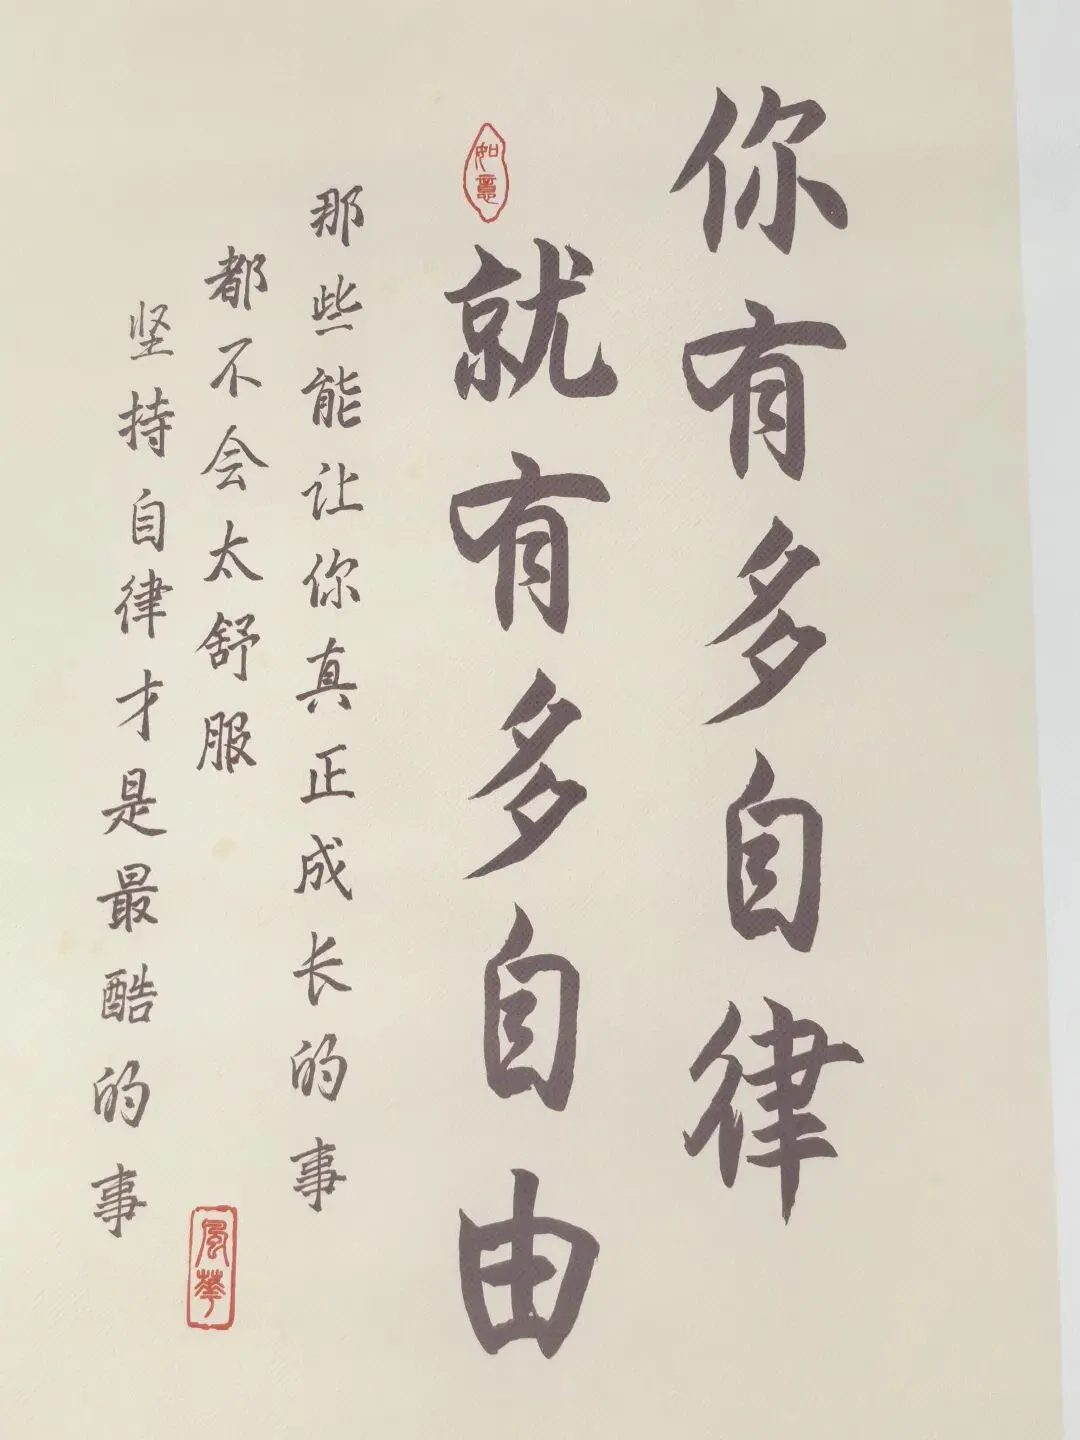 你有多自律
如意
就有多自由
那些能让你真正成长的事
都不会太舒服
坚持自律才是最酷的事
风华